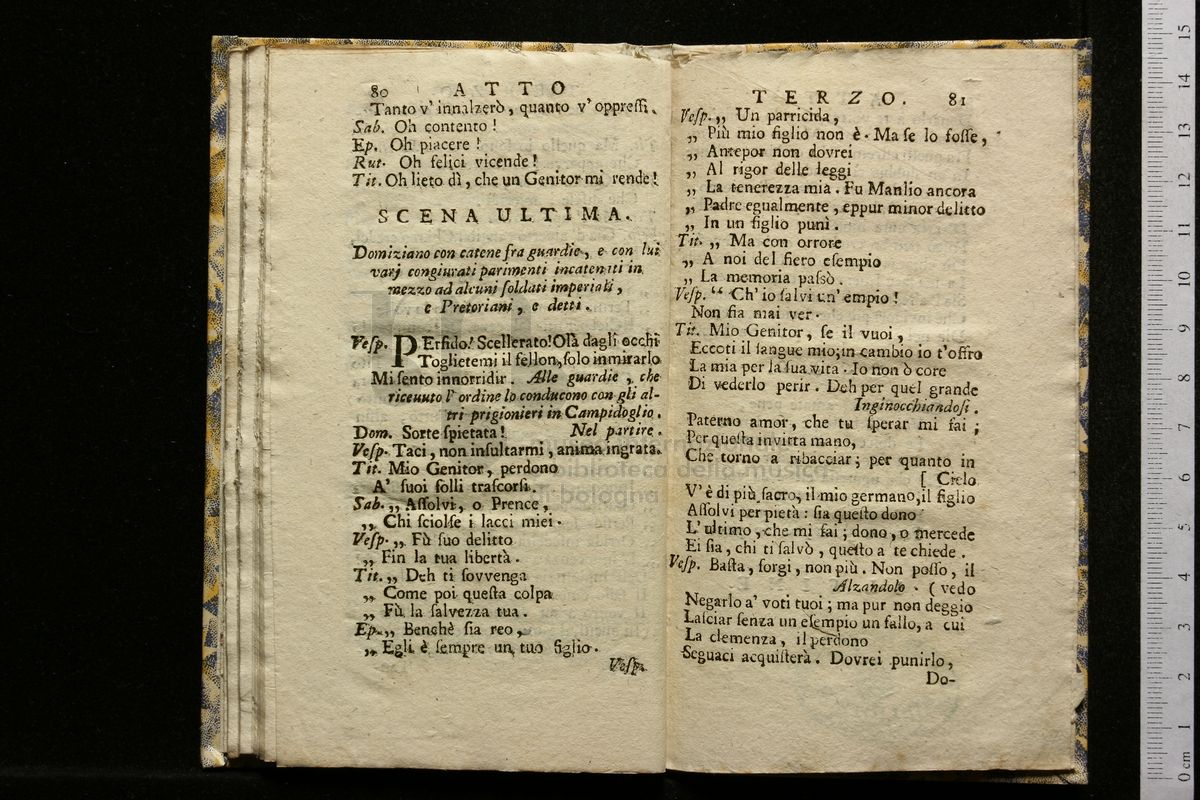 80 ATTO
Tanto v' innalzerò, quanto v' oppreſſi.
Sab. Oh contento!
Ep. Oh piacere!
Rut. Oh felici vicende!
Tit. Oh lieto dì, che un Genitor mi rende!
SCENA ULTIMA.
Domiziano con catene fra guardie, e con lui
varj congiurati parimenti incatenati in
mezzo ad alcuni ſoldati imperiali,
e Pretoriani, e detti.
Veſp. PErfido! Scellerato! Olà dagli occhi
Toglietemi il fellon, ſolo in mirarlo
Mi ſento innorridir. Alle guardie, che
riceuuto l' ordine lo conducono con gli al-
tri prigionieri in Campidoglio.
Dom. Sorte ſpietata! Nel partire.
Veſp. Taci, non inſultarmi, anima ingrata.
Tit. Mio Genitor, perdono
A' ſuoi folli traſcorſi.
Sab. „ Aſſolvi, o Prence,
„ Chi ſciolſe i lacci miei.
Veſp. „ Fù ſuo delitto
„ Fin la tua libertà.
Tit. „ Deh ti ſovvenga
„ Come poi queſta colpa
„ Fù la ſalvezza tua.
Ep. „ Benchè ſia reo,
„ Egli è ſempre un tuo figlio.
Veſp.
TERZO. 81
Veſp. „ Un parricida,
„ Più mio figlio non è. Ma ſe lo foſſe,
„ Antepor non dovrei
„ Al rigor delle leggi
„ La tenerezza mia. Fu Manlio ancora
„ Padre egualmente, eppur minor delitto
„ In un figlio punì.
Tit. „ Ma con orrore
„ A noi del fiero eſempio
„ La memoria paſsò.
Veſp. “ Ch' io ſalvi un' empio!
Non fia mai ver.
Tit. Mio Genitor, ſe il vuoi,
Eccoti il ſangue mio; in cambio io t'offro
La mia per la ſua vita. Io non ò core
Di vederlo perir. Deh per quel grande
Inginocchiandoſi.
Paterno amor, che tu ſperar mi fai;
Per queſta invitta mano,
Che torno a ribacciar; per quanto in
[ Cielo
V' è di più ſacro, il mio germano, il figlio
Aſſolvi per pietà: ſia queſto dono
L' ultimo, che mi fai; dono, o mercede
Ei ſia, chi ti ſalvò, queſto a te chiede.
Veſp. Baſta, ſorgi, non più. Non poſſo, il
Alzandolo. ( vedo
Negarlo a' voti tuoi; ma pur non deggio
Laſciar ſenza un eſempio un fallo, a cui
La clemenza, il perdono
Seguaci acquiſterà. Dovrei punirlo,
Do-
biblioteca della musica
di bologna
0 cm 1 2 3 4 5 6 7 8 9 10 11 12 13 14 15